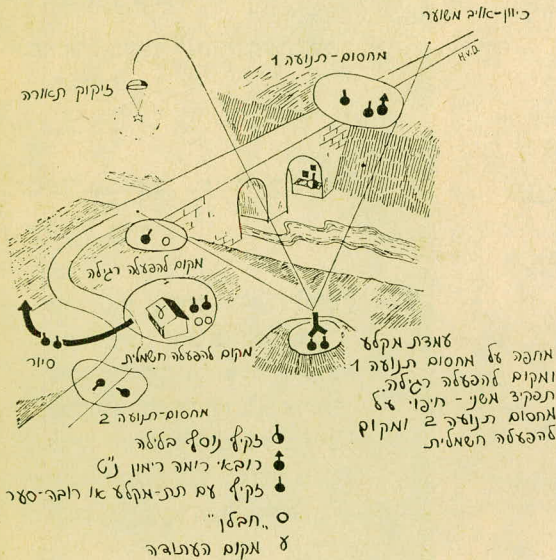 כיוון-אויב משוער
H.V.D.
מחסום-תנועה 1
זיקוק תאורה
מקום להפעלה רגילה
מקום להפעלה חשמלית
סיור
מחסום-תנועה 2
עמדת מקלע
מחפה על מחסום תנועה 1
ומקום להפעלה רגילה.
תפקיד משני - חיפוי על
מחסום תנועה 2 ומקום
להפעלה חשמלית
זקיף נוסף בלילה
רובאי רומה רימון נ"ט
זקיף עם תת-מקלע או רובה-סער
"חבלן"
מקום העתודה